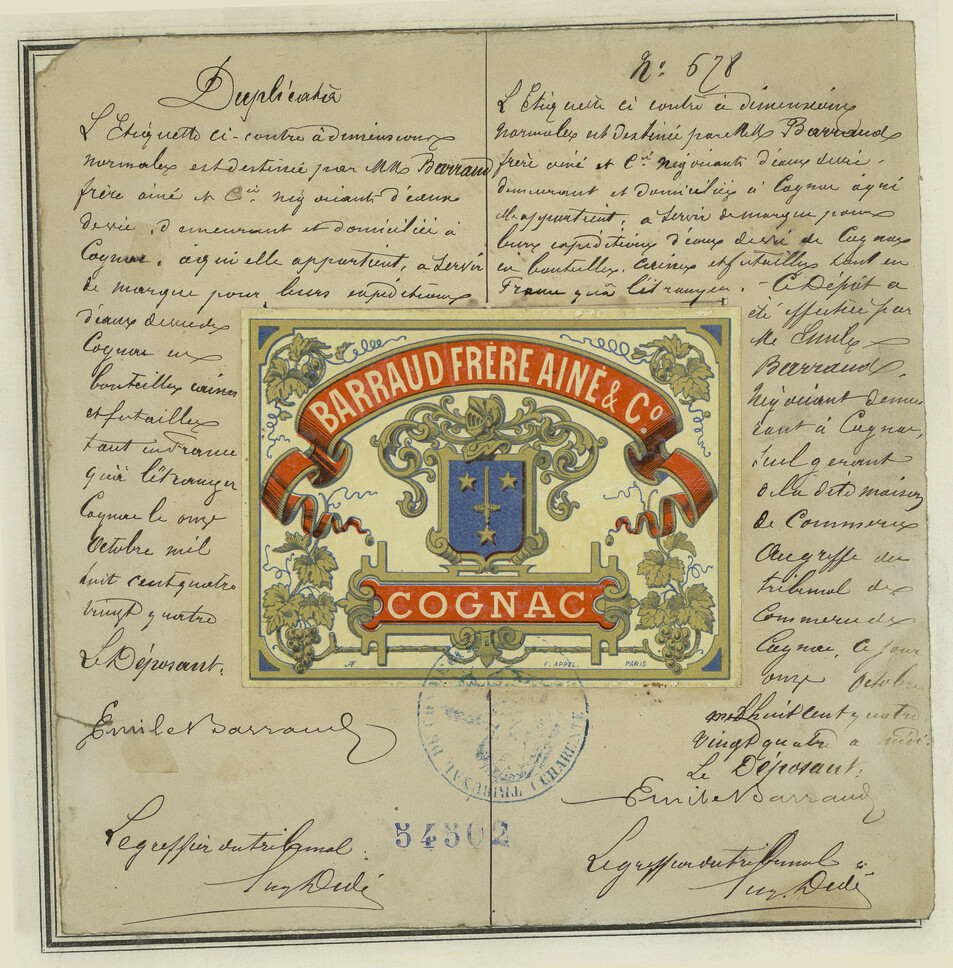 Duplicata
L'Etiquette ci-contre à dimensions
normales est destinée par MM Barraud
frère ainé et Cie négociants d'eaux
devie, demeurant et domiciliée à
Cognac, à qui elle appartient, a servir
de marque pour leurs expéditions
d'eaux devie de
Cognac en
bouteilles caisses
et futailles
tant en France
qu'à l'étranger
Cognac le onze
Octobre mil
huit cent quatre
vingt quatre
Le Déposant,
Emile Barraud
Le greffier du tribunal
No 678
L'Etiquette ci contre à dimensions
normales est destinée par MM Barraud
frère ainé et Cie négociants d'eaux devie.
demeurant et domiciliés à Cognac à qui
elle appartient, a servir de marque pour
leurs expéditions d'eaux devie de Cognac
en bouteilles, caisses et futailles tant en
France qu'à l'étranger. - Ce Dépôt a
été effectué par
Me Emile
Barraud,
Négociant demeu
rant à Cognac,
seul gérant
de la dite maison
de Commerce
Au greffe du
tribunal de
Commerce de
Cognac, Ce jour
onze Octobre
mil huit cent quatre
vingt quatre a midi.
Le Déposant,
Emile Barraud
Le greffier du tribunal
BARRAUD FRÈRE AINÉ & Co.
COGNAC
F. APPEL. PARIS
TRIBUNAL DE (CHARENTE
54502